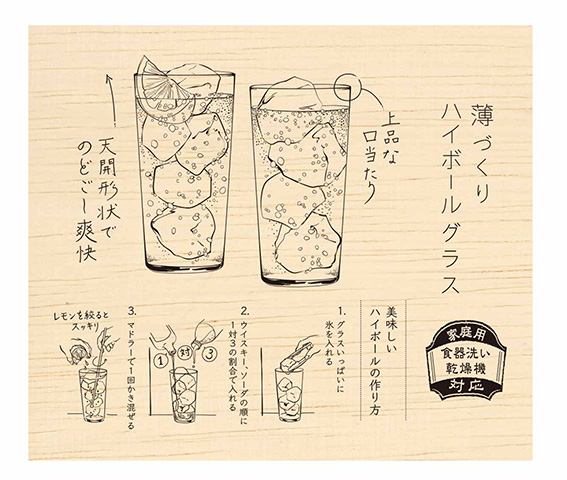 薄づくり
ハイボールグラス
上品な
口当たり
天開形状で
のどごし爽快
家庭用
食器洗い
乾燥機
対応
美味しい
ハイボールの作り方
1. グラスいっぱいに
氷を入れる
2. ウイスキー、ソーダの順に
1対3の割合で入れる
1
対
3
3. マドラーで1回かき混ぜる
レモンを絞ると
スッキリ